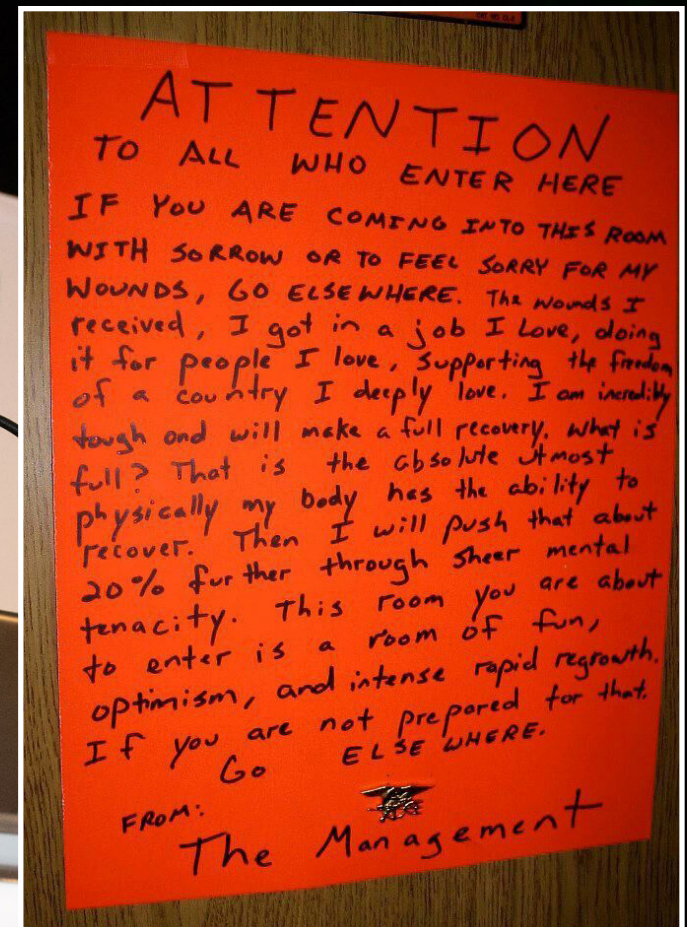 ATTENTION
TO ALL WHO ENTER HERE
IF YOU ARE COMING INTO THIS ROOM
WITH SORROW OR TO FEEL SORRY FOR MY
WOUNDS, GO ELSEWHERE. The wounds I
received, I got in a job I love, doing
it for people I love, supporting the freedom
of a country I deeply love. I am incredibly
tough and will make a full recovery. What is
full? That is the absolute utmost
physically my body has the ability to
recover. Then I will push that about
20% further through sheer mental
tenacity. This room you are about
to enter is a room of fun,
optimism, and intense rapid regrowth.
If you are not prepared for that.
Go ELSEWHERE.
FROM:
The Management